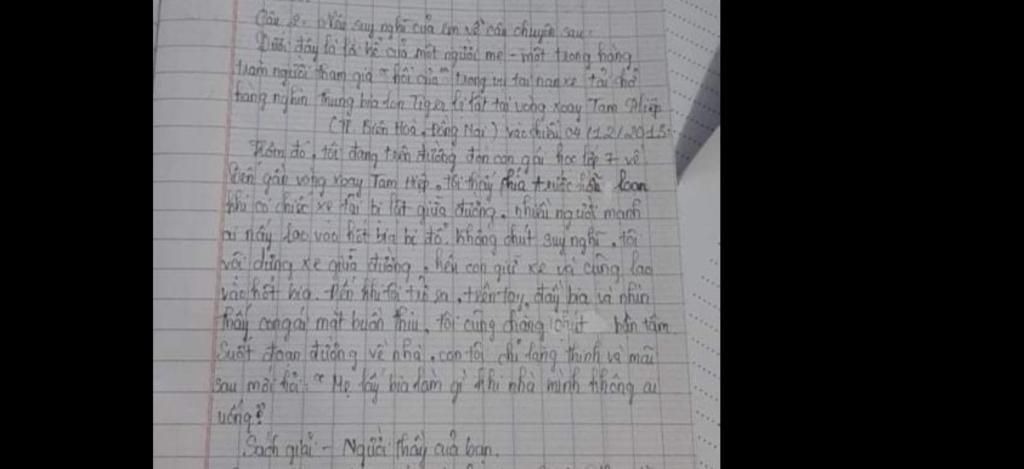 Câu 2. Nêu suy nghĩ của em về câu chuyện sau:
Dưới đây là lời kể của một người mẹ - một trong hàng
trăm người tham gia "hôi của" trong vụ tai nạn xe tải chở
hàng nghìn thùng bia lon Tiger bị lật tại vòng xoay Tam Hiệp
(TP. Biên Hoà, Đồng Nai) vào chiều 04/12/2013:
Hôm đó, tôi đang trên đường đón con gái học lớp 7 về
Đến gần vòng xoay Tam Hiệp, tôi thấy phía trước hỗn loạn
khi có chiếc xe tải bị lật giữa đường, nhiều người mạnh
ai nấy lao vào hốt bia bị đổ. Không chút suy nghĩ, tôi
vội dừng xe giữa đường, kêu con giữ xe và cũng lao
vào hốt bia. Đến khi tôi trở ra, trên tay đầy bia và nhìn
thấy con gái mặt buồn thiu, tôi cũng chẳng chút bận tâm.
Suốt đoạn đường về nhà, con tôi chỉ lặng thinh và mãi
sau mới hỏi: "Mẹ lấy bia làm gì khi nhà mình không ai
uống?
Sách giải - Người thầy của bạn.